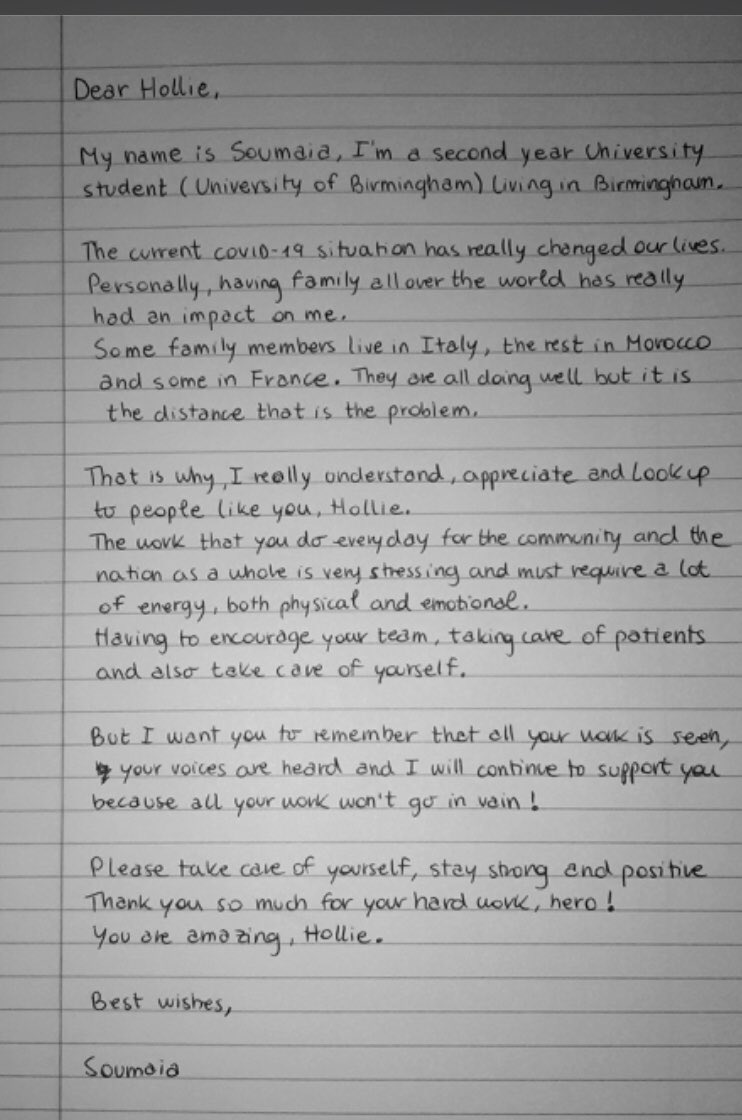 Dear Hollie,
My name is Soumaia, I'm a second year University
student (University of Birmingham) living in Birmingham.
The current covid-19 situation has really changed our lives.
Personally, having family all over the world has really
had an impact on me.
Some family members live in Italy, the rest in Morocco
and some in France. They are all doing well but it is
the distance that is the problem.
That is why, I really understand, appreciate and look up
to people like you, Hollie.
The work that you do everyday for the community and the
nation as a whole is very stressing and must require a lot
of energy, both physical and emotional.
Having to encourage your team, taking care of patients
and also take care of yourself.
But I want you to remember that all your work is seen,
your voices are heard and I will continue to support you
because all your work won't go in vain!
Please take care of yourself, stay strong and positive
Thank you so much for your hard work, hero!
You are amazing, Hollie.
Best wishes,
Soumaia